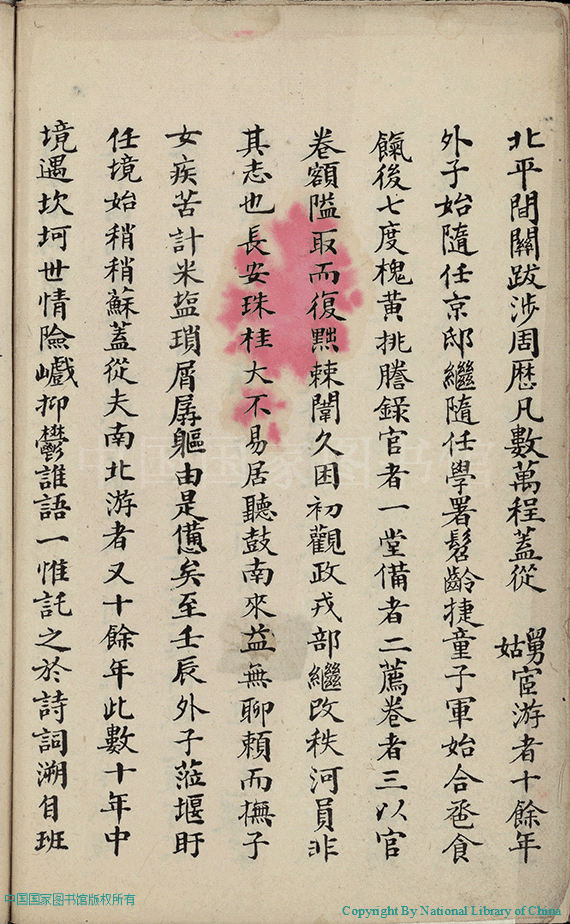 北平間關跋涉周歷凡數萬程蓋從舅姑宦游者十餘年
外子始隨任京邸繼隨任學署髫齡捷童子軍始合巹食
餼後七度槐黃挑謄錄官者一堂備者二薦卷者三以官
卷額隘取而復黜棘闈久困初觀政戎部繼改秩河員非
其志也長安珠桂大不易居聽鼓南來益無聊賴而撫子
女疾苦計米盐瑣屑孱軀由是憊矣至壬辰外子蒞堰盱
任境始稍稍蘇蓋從夫南北游者又十餘年此數十年中
境遇坎坷世情險巇抑鬱誰語一惟託之於詩詞溯自班
中国国家图书馆
中国国家图书馆版权所有
Copyright By National Library of China